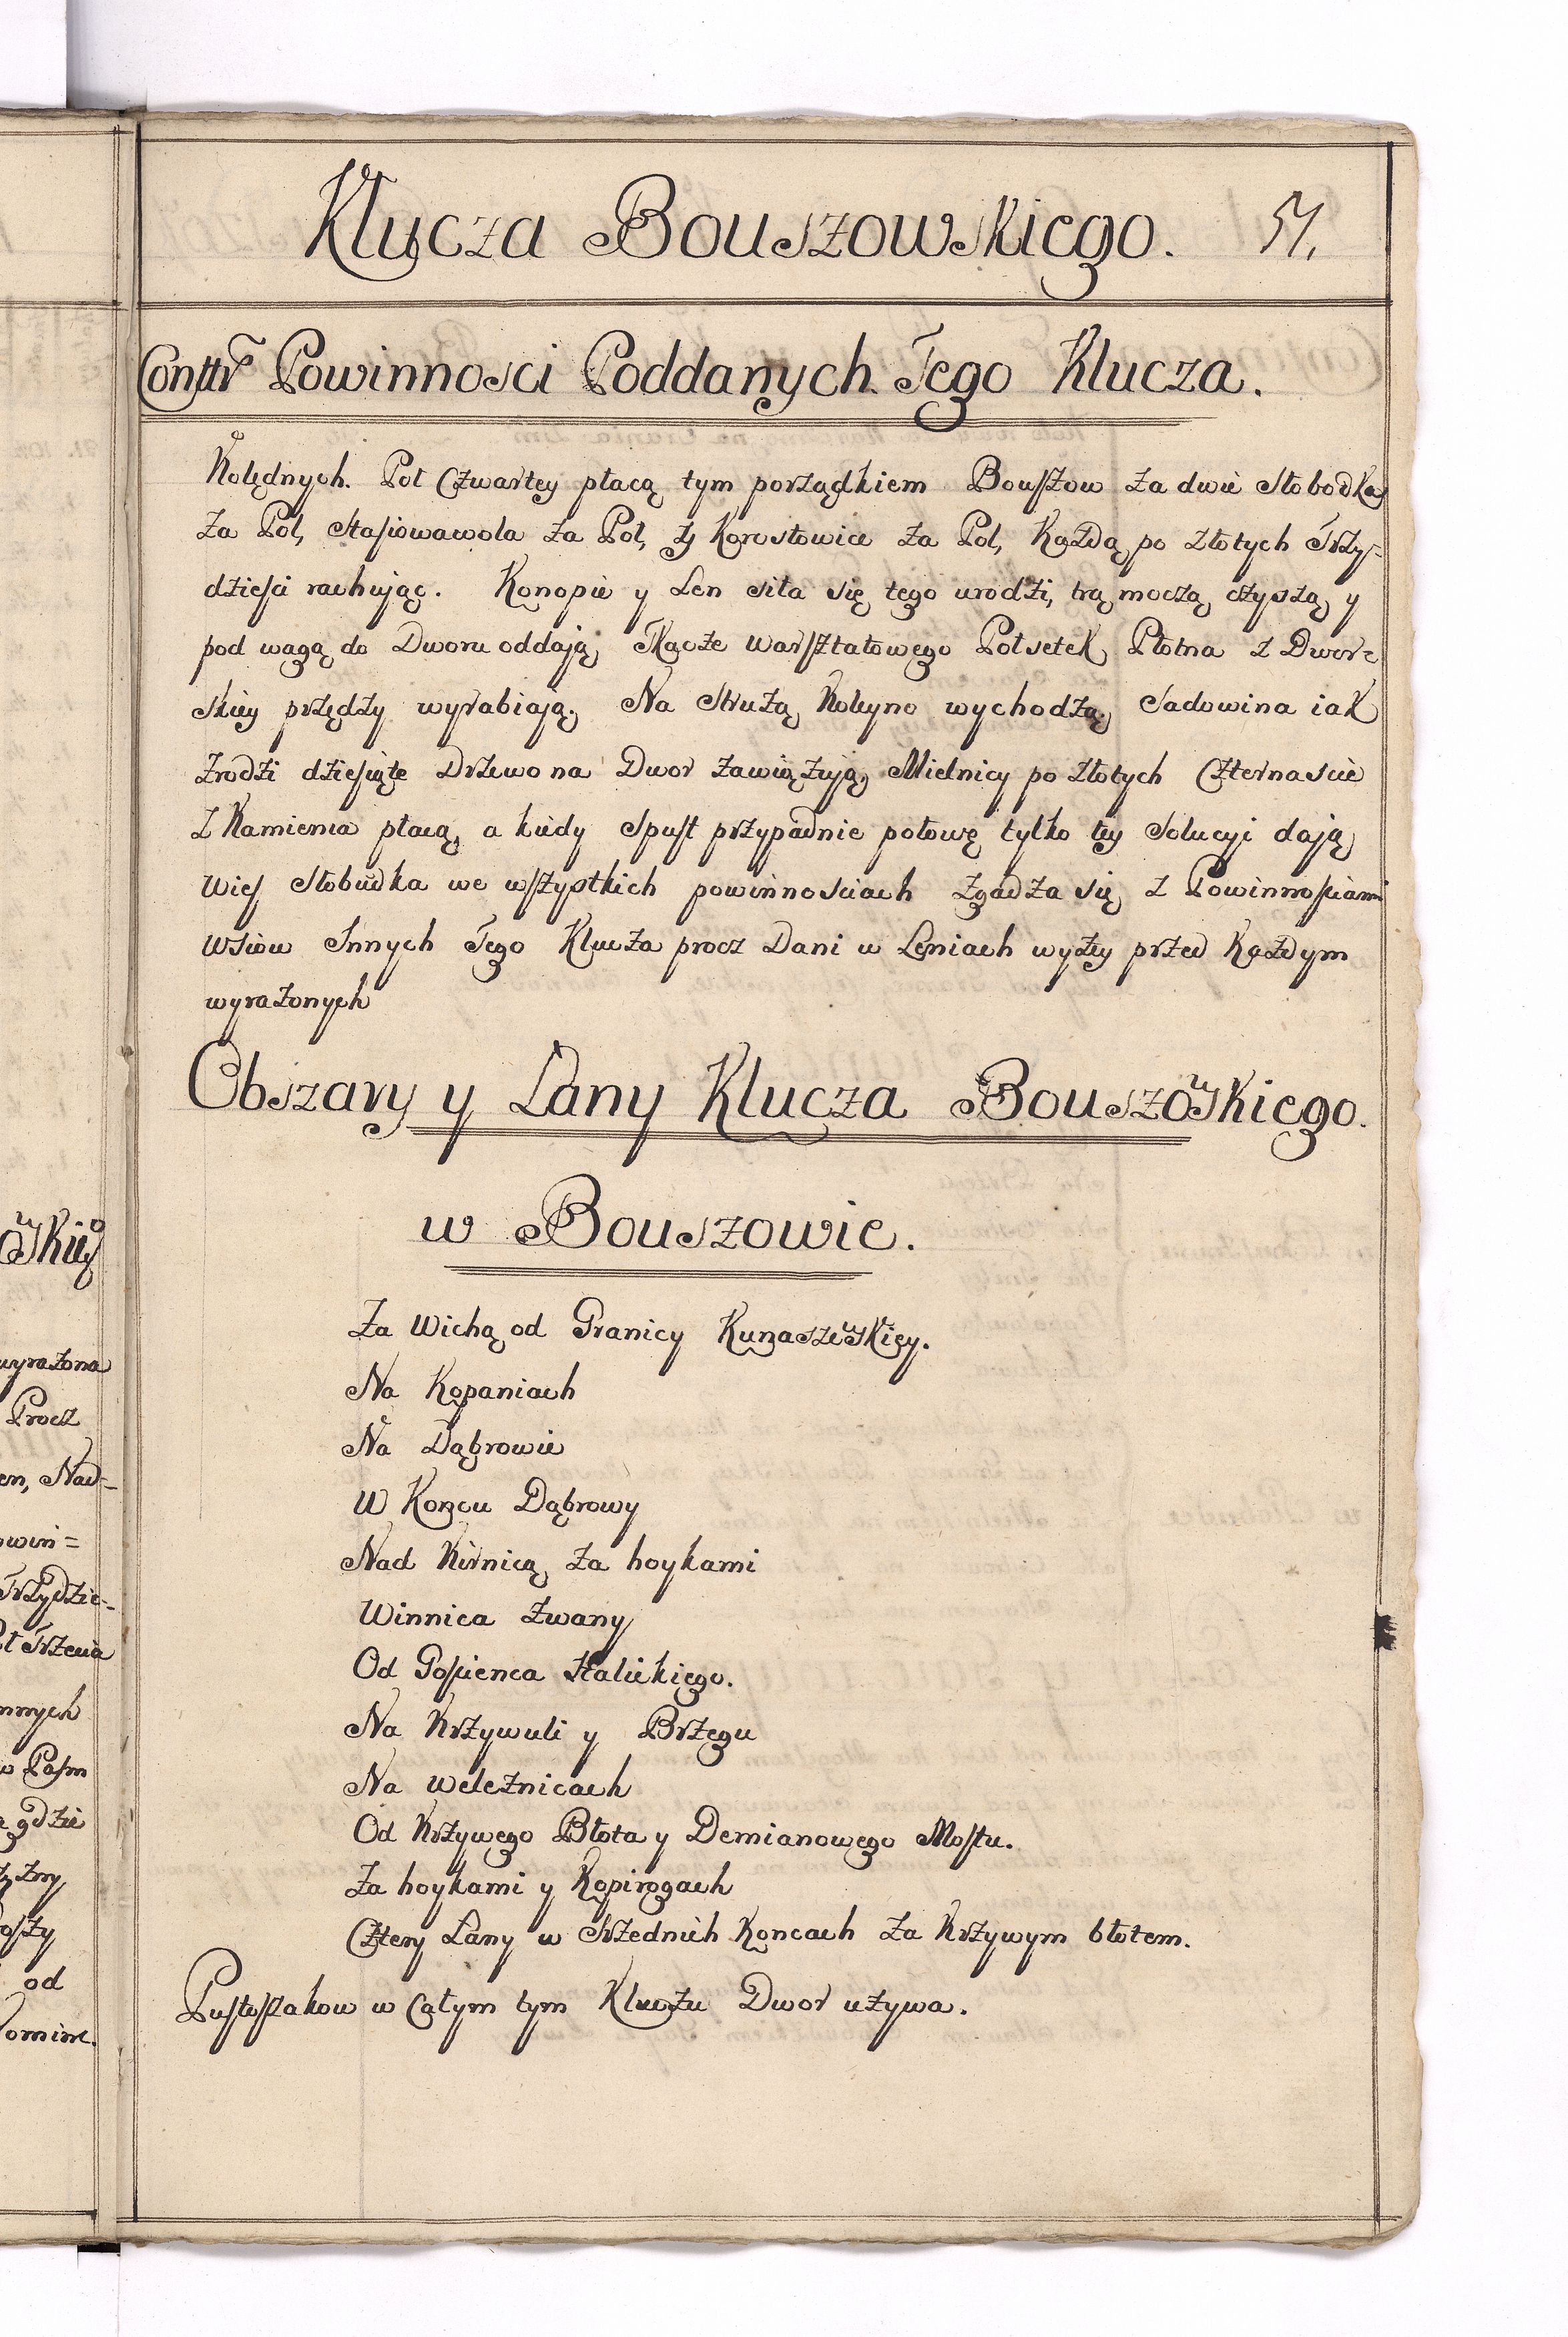 Klucza Bouszowskiego. 51.
Conttr Powinnosci Poddanych Tego Klucza.
Kolędnych. Poł Czwartey płacą tym porządkiem Bouszow za dwie Słobodka
za Poł, Stasiowawola za Poł, y Korostowice za Poł, Każdą po Złotych Trzy-
dziesci rachując. Konopie y Len siła się tego urodzi, trą moczą czyszą y
pod wagą do Dworu oddają, Tkacze warsztatowego Połsetek Płotna z Dwor-
skiey przędzy wyrabiają. Na Strużą Koleyno wychodzą, Sadowina iak
zrodzi dziesiąte Drzewo na Dwor zawiązują, Mielnicy po Złotych Czternascie
z Kamienia płacą, a kiedy Spust przypadnie połowę tylko tey Solucyi dają
Wies Słobudka we wszystkich powinnosciach zgadza się z Powinnosciami
Wsiow Innych Tego Klucza procz Dani w Leniach wyżey przed Każdym
wyrażonych
Obszary y Lany Klucza Bouszowskiego.
w Bouszowie.
Za Wichą od Granicy Kunaszewskiey.
Na Kopaniach
Na Dąbrowie
W Koncu Dąbrowy
Nad Kirnicą za hoykami
Winnica zwany
Od Gosienca Halickiego.
Na Krzywuli y Brzegu
Na Weleznicach
Od Krzywego Błota y Demianowego Mostu.
Za hoykami y Kopirogach
Cztery Lany w Srzednich Koncach za Krzywym błotem.
Pustoszakow w Całym tym Kluczu Dwor używa.
owskiey
wyrażona
Procz
en, Nad-
owin=
Trzydzie-
ł Trzecia
nnych
w Pasm
gdzie
od